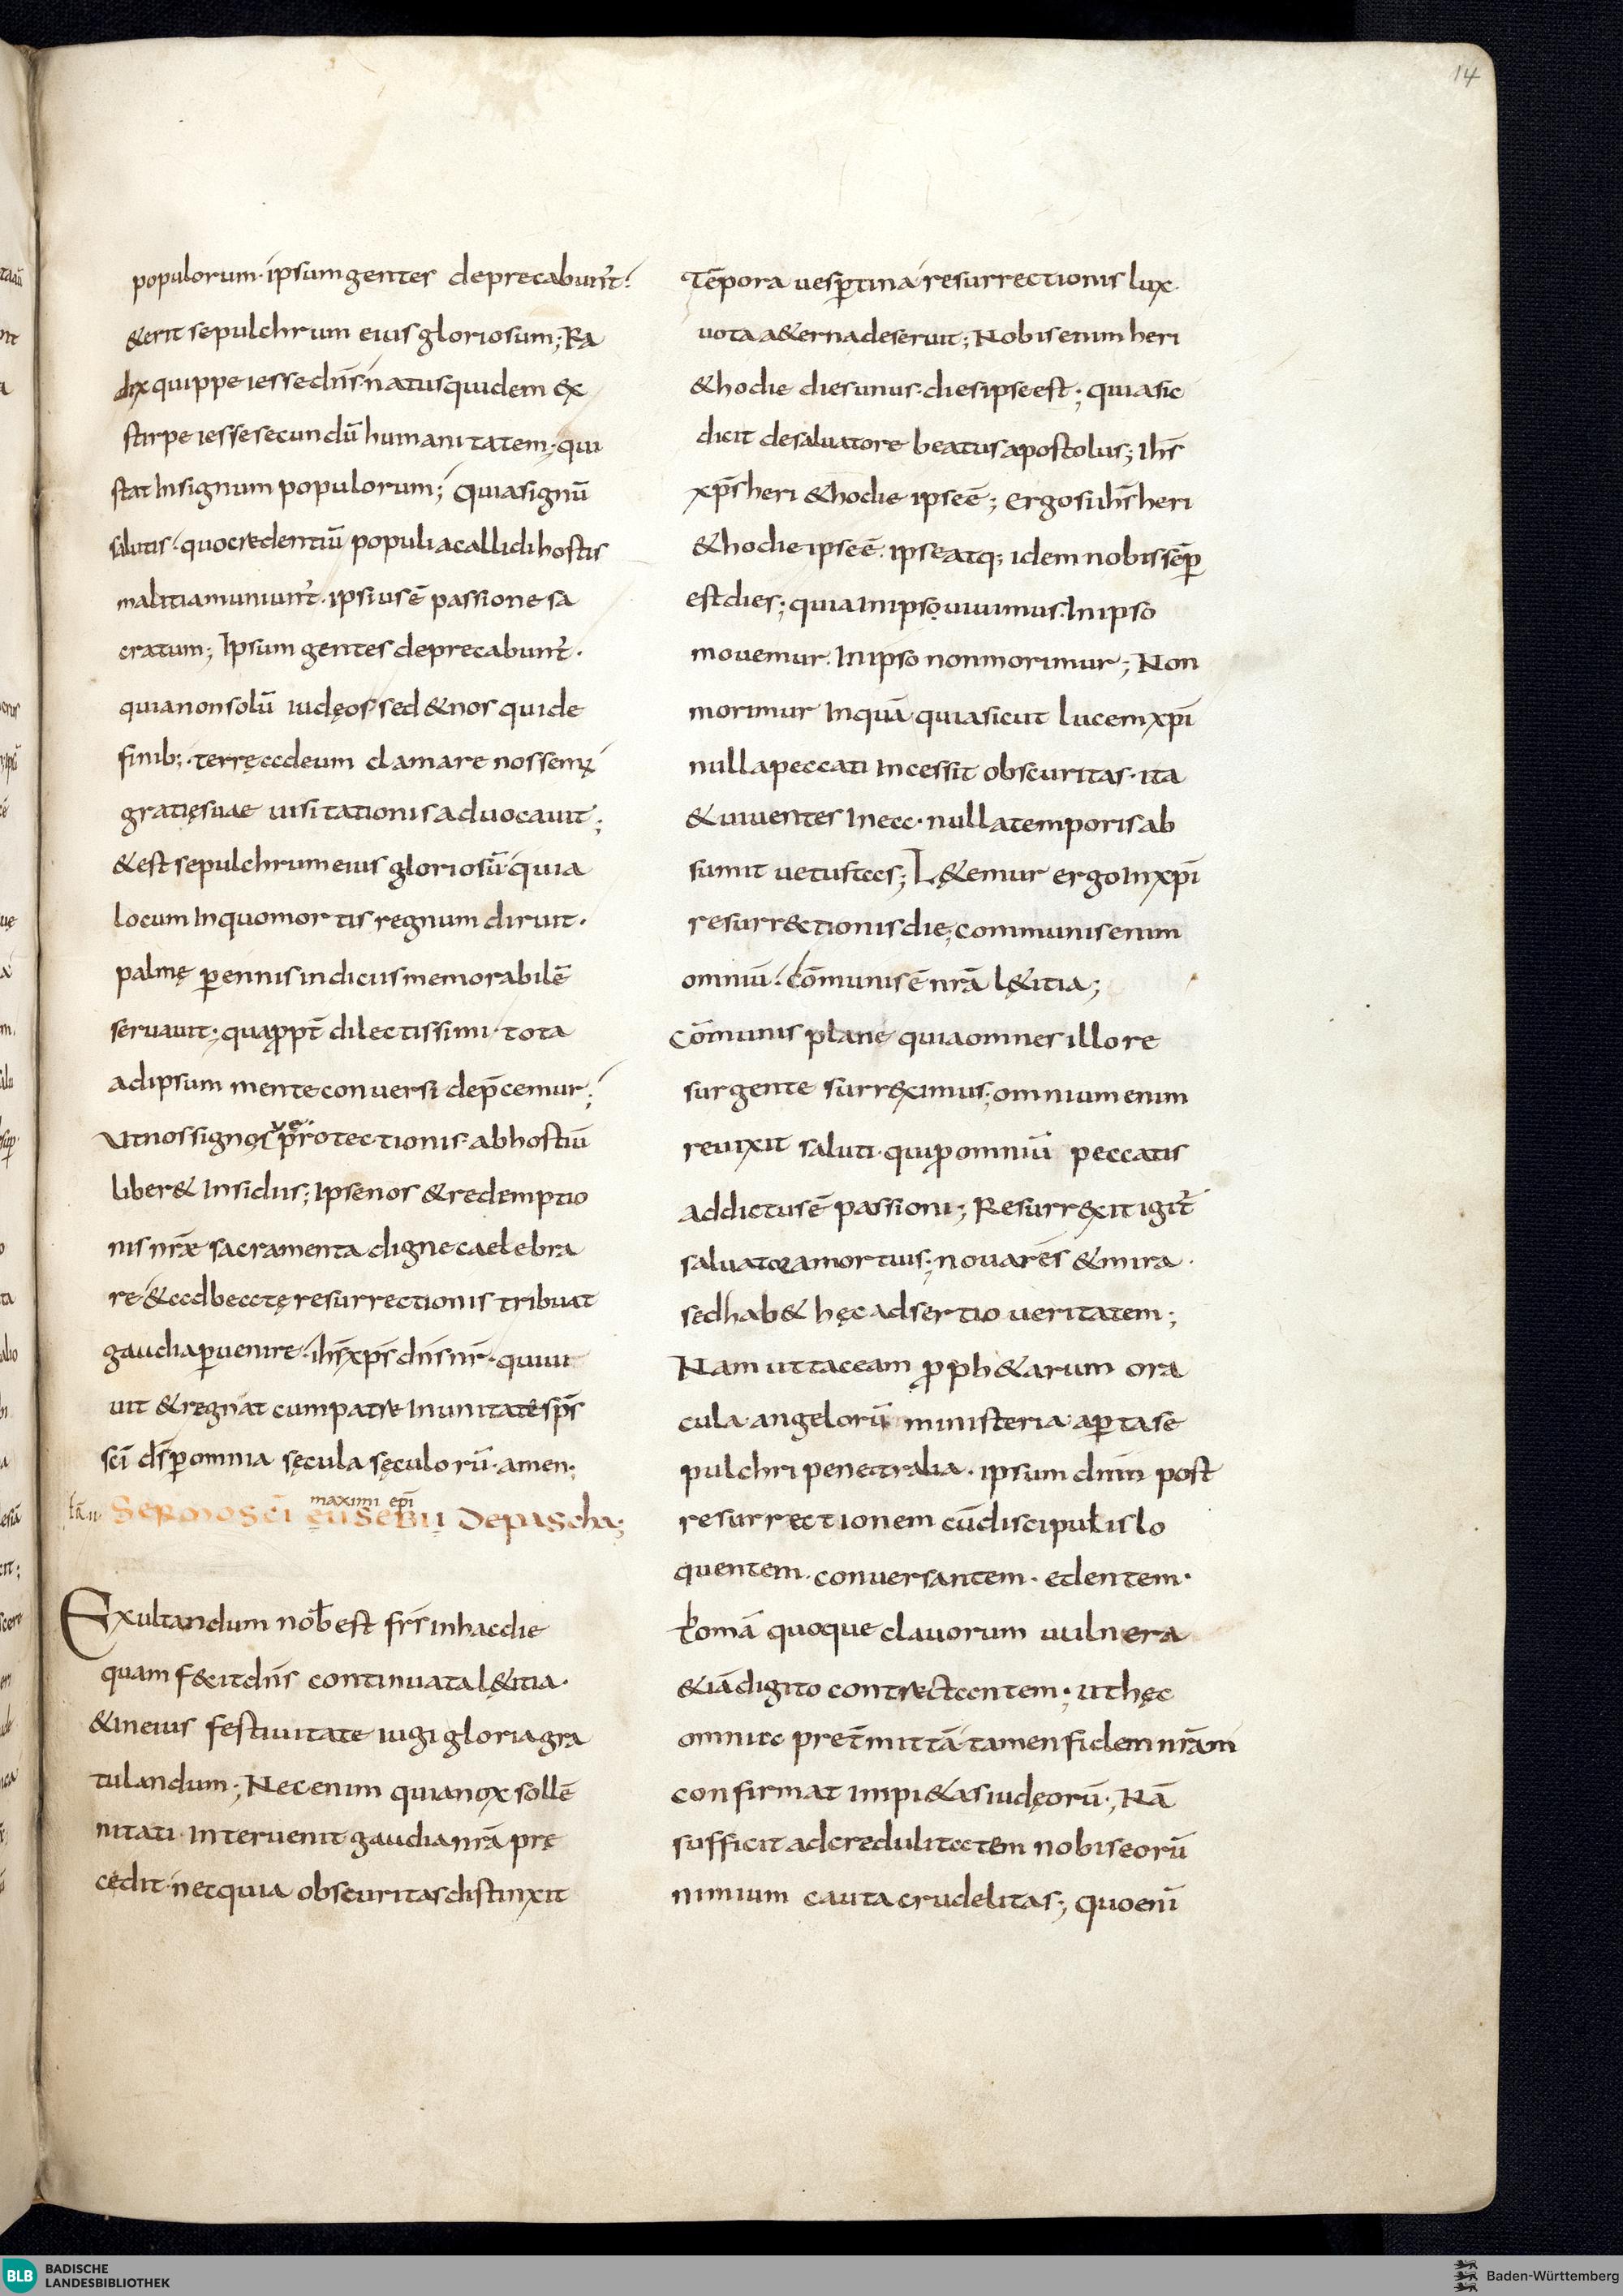 14
populorum · ipsum gentes deprecabunt̃ ·
& erit sepulchrum eius gloriosum; Ra
dix quippe iesse dn̄s · natus quidem ex
stirpe iesse secundū humanitatem; qui
stat In signum populorum; Quia signū
salutis · quo credentiū populi a callidi hostis
malitia muniunt̃ · ipsius ē passione sa
cratum; Ipsum gentes deprecabunt̃ ·
quia non solū iudęos sed & nos qui de
finib; · terrę ad eum clamare nossemꝰ
gratię suae uisitationis aduocauit;
& est sepulchrum eius gloriosū · quia
locum In quo mortis regnum diruit ·
palmę ꝑennis indiciis memorabilē
seruauit; quaꝓpt̄ dilectissimi · tota
ad ipsum mente conuersi dep̄cemur;
Ut nos signo suę protectionis · ab hostiū
liber& Insidiis; Ipse nos & redemptio
nis nr̄æ sacramenta digne caelebra
re · & ad beatę resurrectionis tribuat
gaudia ꝑuenire · ih̄s xp̄s dn̄s nr̄ · qui ui
uit & regnat cum patre In unitate sp̄s
sc̄i d̄s ꝑ omnia sęcula sęculorū · amen;
maximi ep̄i
Sermo sc̄i eusebii de pascha;
Exultandum nob̄ est fr̄s in hac die
quam fecit dn̄s continuata lę&itia ·
& in eius festiuitate iugi gloria gra
tulandum; Nec enim quia nox sollē
nitati · Interuenit gaudia nr̄a prę
cedit · nec quia obscuritas distinxit
Tēpora uesꝑtina resurrectionis lux
uota a&erna deseruit; Nobis enim heri
& hodie dies unus · dies ipse est; quia sic
dicit de saluatore beatus apostolus; Ih̄s
xp̄s heri & hodie ipse ē; ergo si ih̄s heri
& hodie ipse ē · ipse atq; idem nobis sēꝑ
est dies; quia In ipso uiuimus · In ipso
mouemur · In ipso non morimur; Non
morimur Inquā quia sicut lucem xp̄i
nulla peccati Incessit obscuritas · ita
& uiuentes In ea · nulla temporis ab
sumit uetustas; Lę&emur ergo In xp̄i
resurr&ctionis die; communis enim
omniū · cōmunis ē nr̄a lę&itia;
Cōmunis plane quia omnes illo re
surgente surreximus; omnium enim
reuixit saluti · qui ꝓ omniū peccatis
addictus ē passioni; Resurrexit igit̃
saluator a mortuis; noua rēs & mira ·
sed hab& hęc adsertio ueritatem;
Nam ut taceam ꝓph&arum ora
cula · angelorū ministeria · aꝑta se
pulchri penetralia · ipsum dn̄m post
resurrectionem cū discipulis lo
quentem · conuersantem · edentem ·
thomā quoque clauorum uulnera
& iā digito contrectantem · ut hęc
omnia pret̄mittā · tamen fidem nr̄am
confirmat impi&as iudęorū; Nā
sufficit ad credulitatem nobis eorū
nimium cauta crudelitas; quo enī
BLB
BADISCHE
LANDESBIBLIOTHEK
Baden-Württemberg